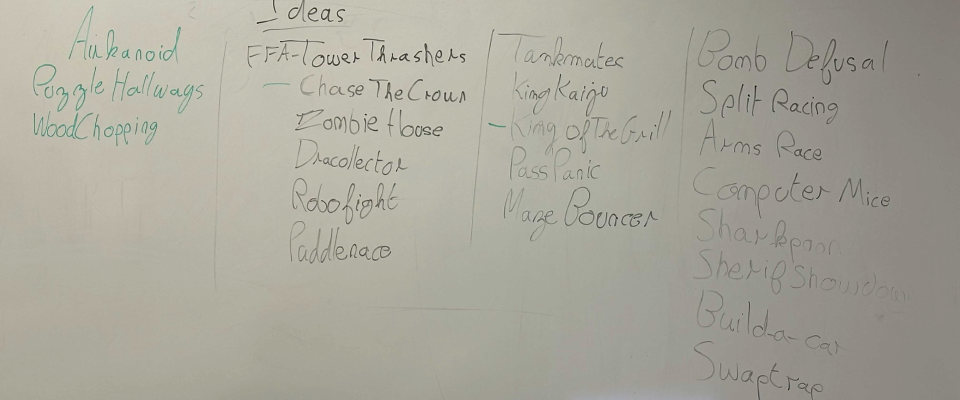 Ideas
Arkanoid
Puzzle Hallways
WoodChopping
FFA-Tower Thrashers
- Chase The Crown
Zombie House
Dracollector
Robofight
Paddlerace
Tankmates
King Kaiju
- King Of The Grill
Pass Panic
Maze Bouncer
Bomb Defusal
Split Racing
Arms Race
Computer Mice
Sherif Showdown
Build-a-car
Swaptrap